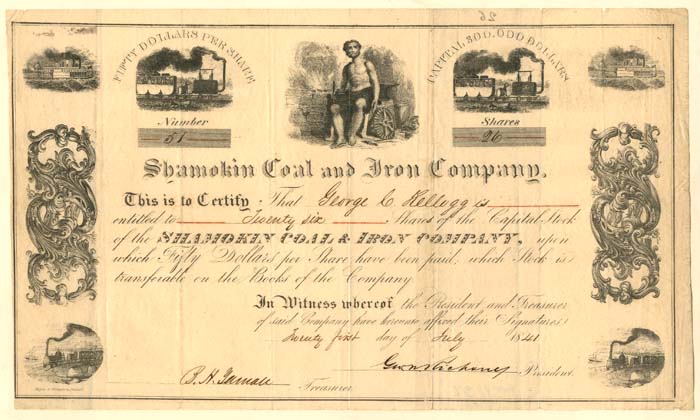 26
FIFTY DOLLARS PER SHARE
CAPITAL 300,000 DOLLARS
Number
51
Shares
26
Shamokin Coal and Iron Company.
This is to Certify That George C. Kellogg is
entitled to Twenty six Shares of the Capital Stock
of the SHAMOKIN COAL & IRON COMPANY, upon
which Fifty Dollars per Share have been paid, which Stock is
transferable on the Books of the Company
In Witness whereof the President and Treasurer
of said Company have hereunto affixed their Signatures
Twenty first day of July 1841
President.
Treasurer